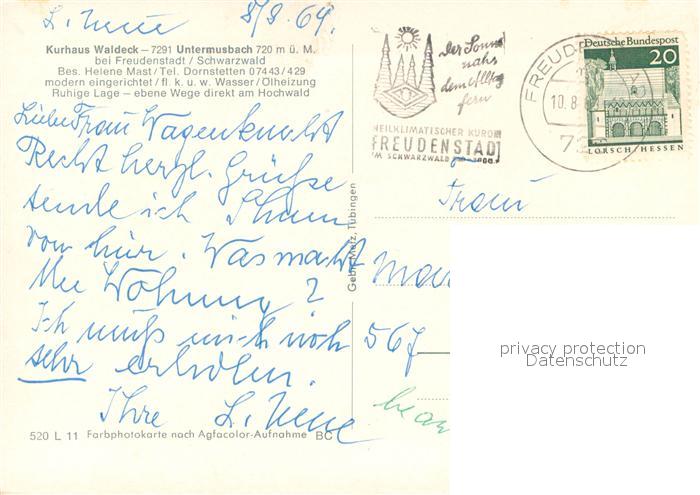 L. Nene 8/8.69.
Kurhaus Waldeck – 7291 Untermusbach 720 m ü. M.
bei Freudenstadt / Schwarzwald
Bes. Helene Mast / Tel. Dornstetten 07443/429
modern eingerichtet / fl. k. u. w. Wasser / Ölheizung
Ruhige Lage – ebene Wege direkt am Hochwald
Liebe Frau Wagenknecht
Recht herzl. Grüße
sende ich Ihnen
von hier. Was macht
Ihre Wohnung?
Ich muß mich noch
sehr erholen.
Ihre L. Nene
520 L 11 Farbphotokarte nach Agfacolor-Aufnahme BC
Gebr. Metz, Tübingen
Der Sonne
nahe
dem Alltag
fern
HEILKLIMATISCHER KURORT
FREUDENSTADT
IM SCHWARZWALD
FREUD
10.8
72
Deutsche Bundespost
20
LORSCH/HESSEN
Frau
567
privacy protection
Datenschutz